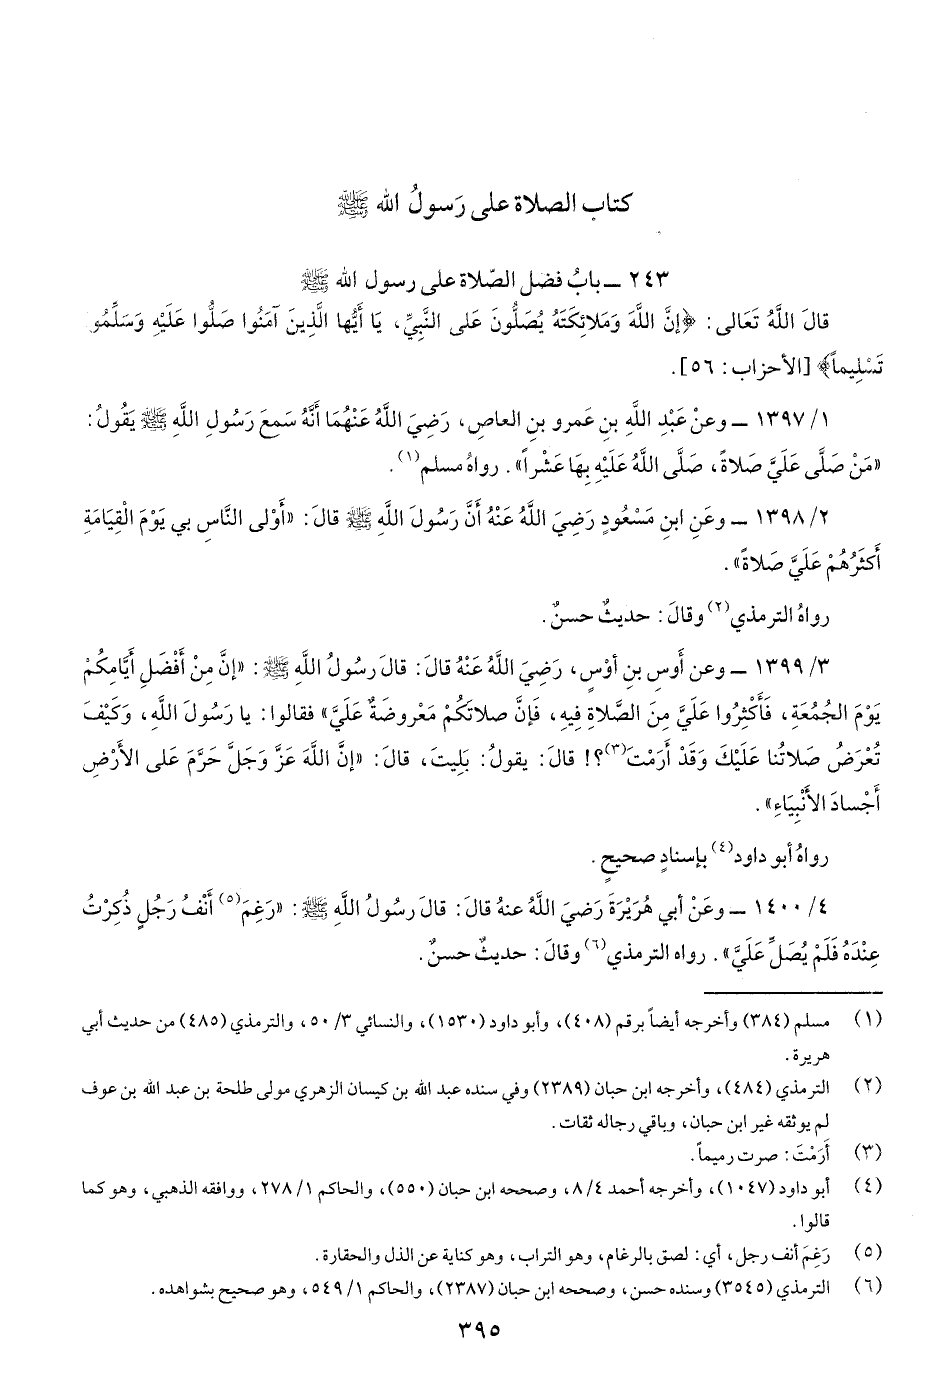 كتاب الصلاة على رَسولُ الله ﷺ
٢٤٣ ــ بابُ فضل الصّلاة على رسول الله ﷺ
قالَ اللَّهُ تَعَالى: ﴿إنَّ اللَّهَ وَمَلائِكَتَهُ يُصَلُّونَ عَلى النَّبِيِّ، يَا أَيُّها الَّذِينَ آمَنُوا صَلُّوا عَلَيْهِ وَسَلِّمُو
تَسْلِيماً﴾ [الأحزاب: ٥٦].
١٣٩٧/١ ــ وعنْ عَبْدِ اللَّهِ بنِ عَمرو بنِ العاصِ، رَضِيَ اللَّهُ عَنْهُمَا أَنَّهُ سَمِعَ رَسُولَ اللَّهِ ﷺ يَقُولُ:
«مَنْ صَلَّى عَلَيَّ صَلاةً، صَلَّى اللَّهُ عَلَيْهِ بِهَا عَشْراً». رواهُ مسلم(١).
١٣٩٨/٢ ــ وعَنِ ابنِ مَسْعُودٍ رَضِيَ اللَّهُ عَنْهُ أَنَّ رَسُولَ اللَّهِ ﷺ قالَ: «أَوْلى النَّاسِ بي يَوْمَ الْقِيَامَةِ
أَكثَرُهُمْ عَلَيَّ صَلاةً».
رواهُ الترمذي(٢) وقالَ: حديثٌ حسنٌ.
١٣٩٩/٣ ــ وعن أَوسِ بنِ أوْسٍ، رَضِيَ اللَّهُ عَنْهُ قالَ: قالَ رسُولُ اللَّهِ ﷺ: «إنَّ مِنْ أَفْضَلِ أَيَّامِكُمْ
يَوْمَ الجُمُعَةِ، فَأَكْثِرُوا عَلَيَّ مِنَ الصَّلاةِ فِيهِ، فَإنَّ صلاتَكُمْ مَعْروضَةٌ عَلَيَّ» فقالوا: يا رَسُولَ اللَّهِ، وَكَيْفَ
تُعْرَضُ صَلاتُنا عَلَيْكَ وَقَدْ أَرَمْتَ(٣)؟! قالَ: يقولُ: بَلِيتَ، قالَ: «إنَّ اللَّهَ عَزَّ وَجَلَّ حَرَّمَ على الأَرْضِ
أَجْسادَ الأنْبِيَاءِ».
رواهُ أبو داود(٤) بإسنادٍ صحيحٍ.
١٤٠٠/٤ ــ وعَنْ أبي هُرَيْرَةَ رَضِيَ اللَّهُ عنهُ قالَ: قالَ رسُولُ اللَّهِ ﷺ: «رَغِمَ(٥) أَنْفُ رَجُلٍ ذُكِرْتُ
عِنْدَهُ فَلَمْ يُصَلِّ عَلَيَّ». رواه الترمذي(٦) وقالَ: حديثٌ حسنٌ.
(١) مسلم (٣٨٤) وأخرجه أيضاً برقم (٤٠٨)، وأبو داود (١٥٣٠)، والنسائي ٣/٥٠، والترمذي (٤٨٥) من حديث أبي
هريرة.
(٢) الترمذي (٤٨٤)، وأخرجه ابن حبان (٢٣٨٩) وفي سنده عبد الله بن كيسان الزهري مولى طلحة بن عبد الله بن عوف
لم يوثقه غير ابن حبان، وباقي رجاله ثقات.
(٣) أَرَمْتَ: صرت رميماً.
(٤) أبو داود (١٠٤٧)، وأخرجه أحمد ٤/٨، وصححه ابن حبان (٥٥٠)، والحاكم ١/٢٧٨، ووافقه الذهبي، وهو كما
قالوا.
(٥) رَغِمَ أنف رجل، أي: لصق بالرغام، وهو التراب، وهو كناية عن الذل والحقارة.
(٦) الترمذي (٣٥٤٥) وسنده حسن، وصححه ابن حبان (٢٣٨٧)، والحاكم ١/٥٤٩، وهو صحيح بشواهده.
٣٩٥